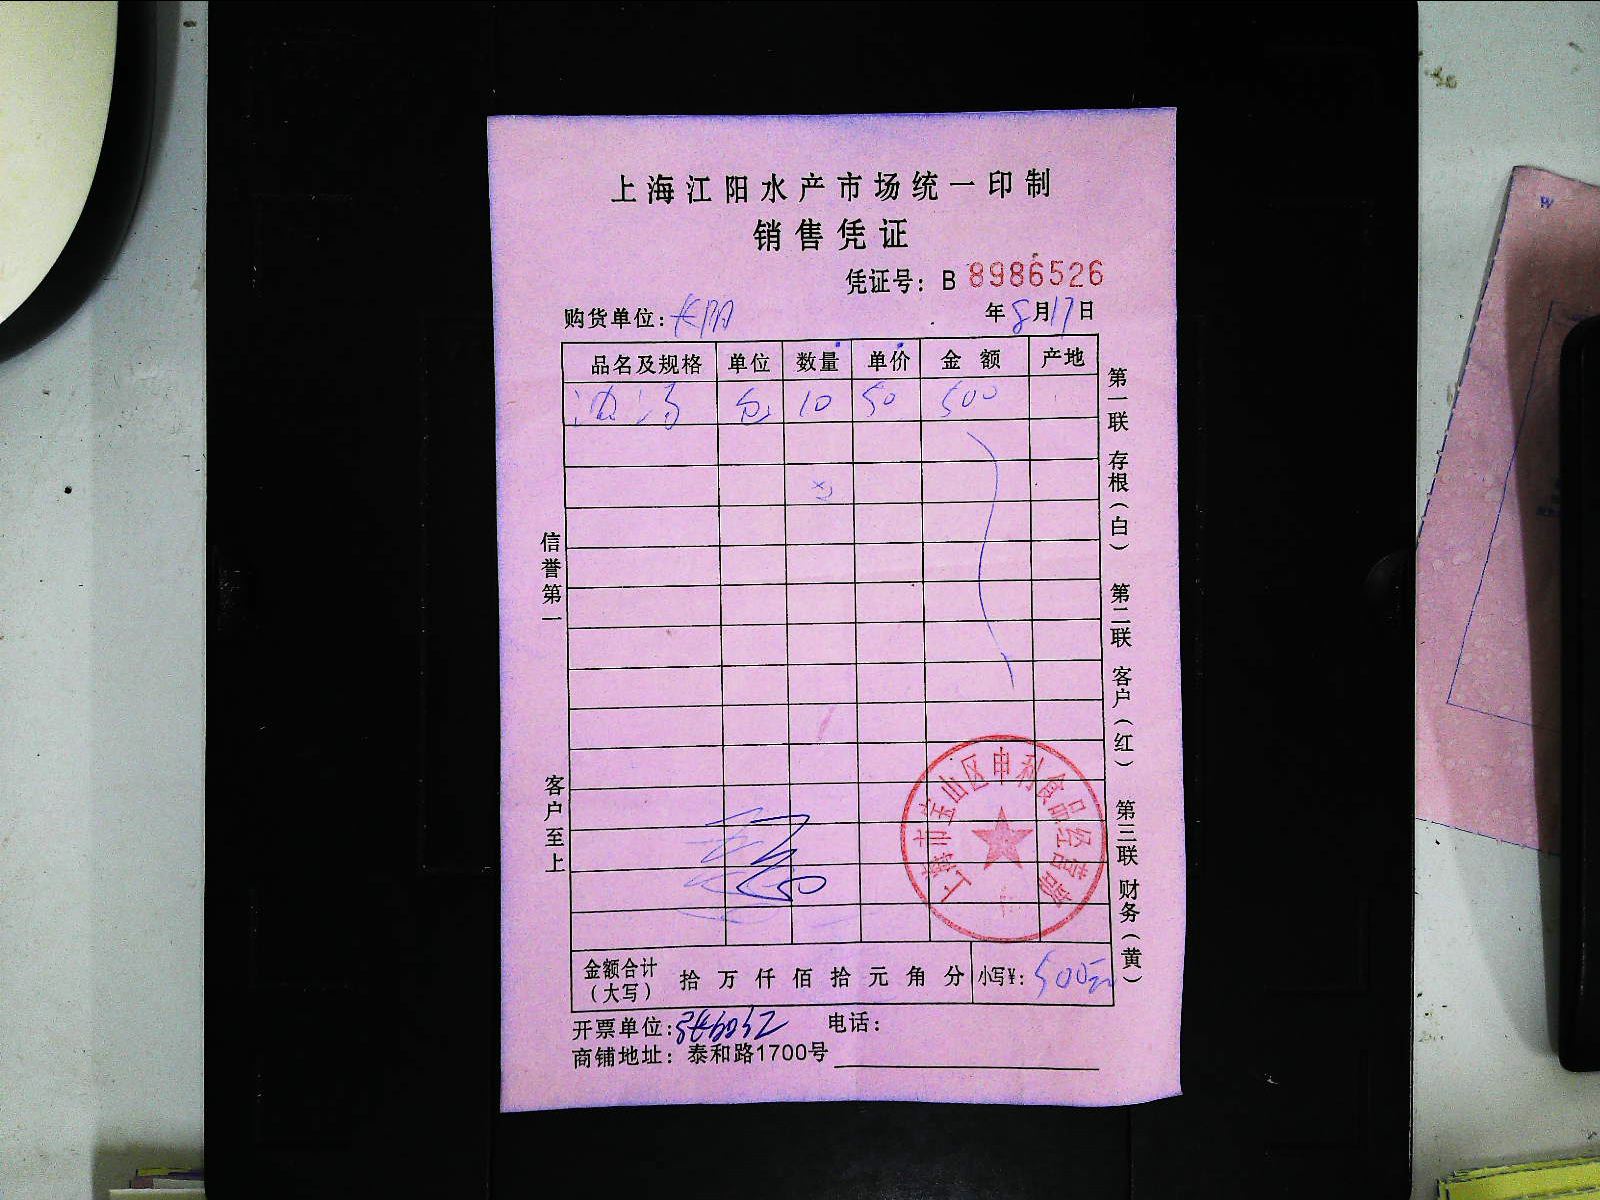 上海江阳水产市场统一印制
销售凭证
凭证号：B 8986526
购货单位：长阳 年8月17日
品名及规格 单位 数量 单价 金额 产地
包 10 50 500
信誉第一
客户至上
第一联 存根（白） 第二联 客户（红） 第三联 财务（黄）
上海市宝山区申利食品经营部
金额合计（大写） 拾 万 仟 佰 拾 元 角 分 小写¥：500元
开票单位： 电话：
商铺地址：泰和路1700号